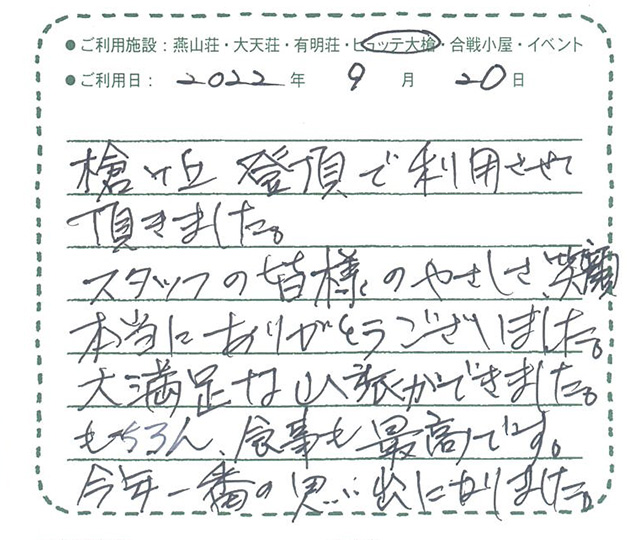 ●ご利用施設：燕山荘・大天荘・有明荘・ヒュッテ大槍・合戦小屋・イベント
●ご利用日： 2022 年 9 月 20 日
槍ヶ丘 登頂で利用させて
頂きました。
スタッフの皆様のやさしさ、笑顔
本当にありがとうございました。
大満足な山旅ができました。
もちろん、食事も最高です。
今年一番の思い出になりました。